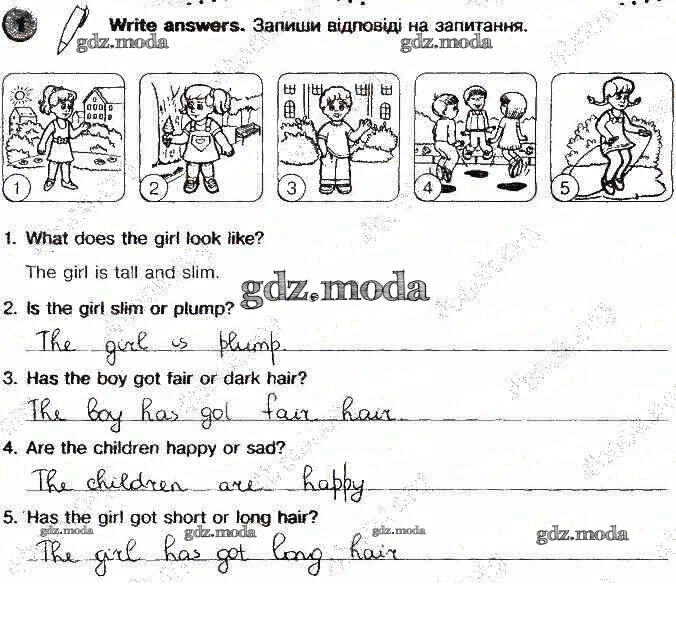 1 Write answers. Запиши відповіді на запитання.
gdz.moda gdz.moda
1 2 3 4 5
1. What does the girl look like?
The girl is tall and slim.
gdz.moda
2. Is the girl slim or plump?
The girl is plump.
3. Has the boy got fair or dark hair?
The boy has got fair hair.
4. Are the children happy or sad?
The children are happy
5. Has the girl got short or long hair?
gdz.moda gdz.moda gdz.moda gdz.moda
The girl has got long hair